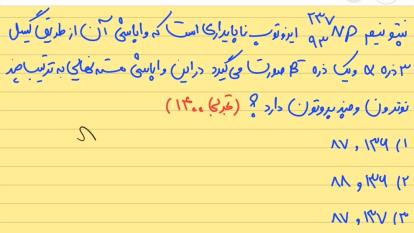 نپتونیم ²³⁷₉₃Np ایزوتوپ ناپایداری است که واپاشی آن از طریق گسیل
۳ ذره α و یک ذره β⁻ صورت می‌گیرد در این واپاشی هسته نهایی به ترتیب چند
نوترون و چند پروتون دارد ؟ (تجربی ۱۴۰۰)
۱) ۱۳۶ و ۸۷
۲) ۱۳۶ و ۸۸
۳) ۱۳۷ و ۸۷